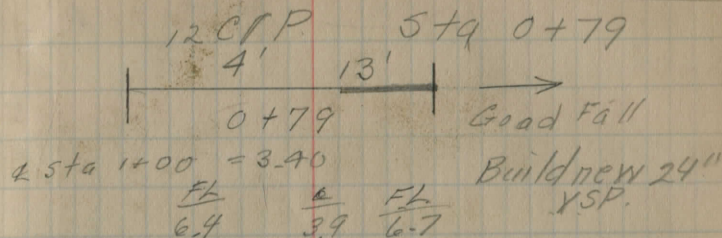 12 CMP Sta 0+79
4' 13'
0+79 Good Fall
¢ Sta 1+00 = 3.40
Build new 24"
VSP.
FL ¢ FL
6.4 3.9 6.7